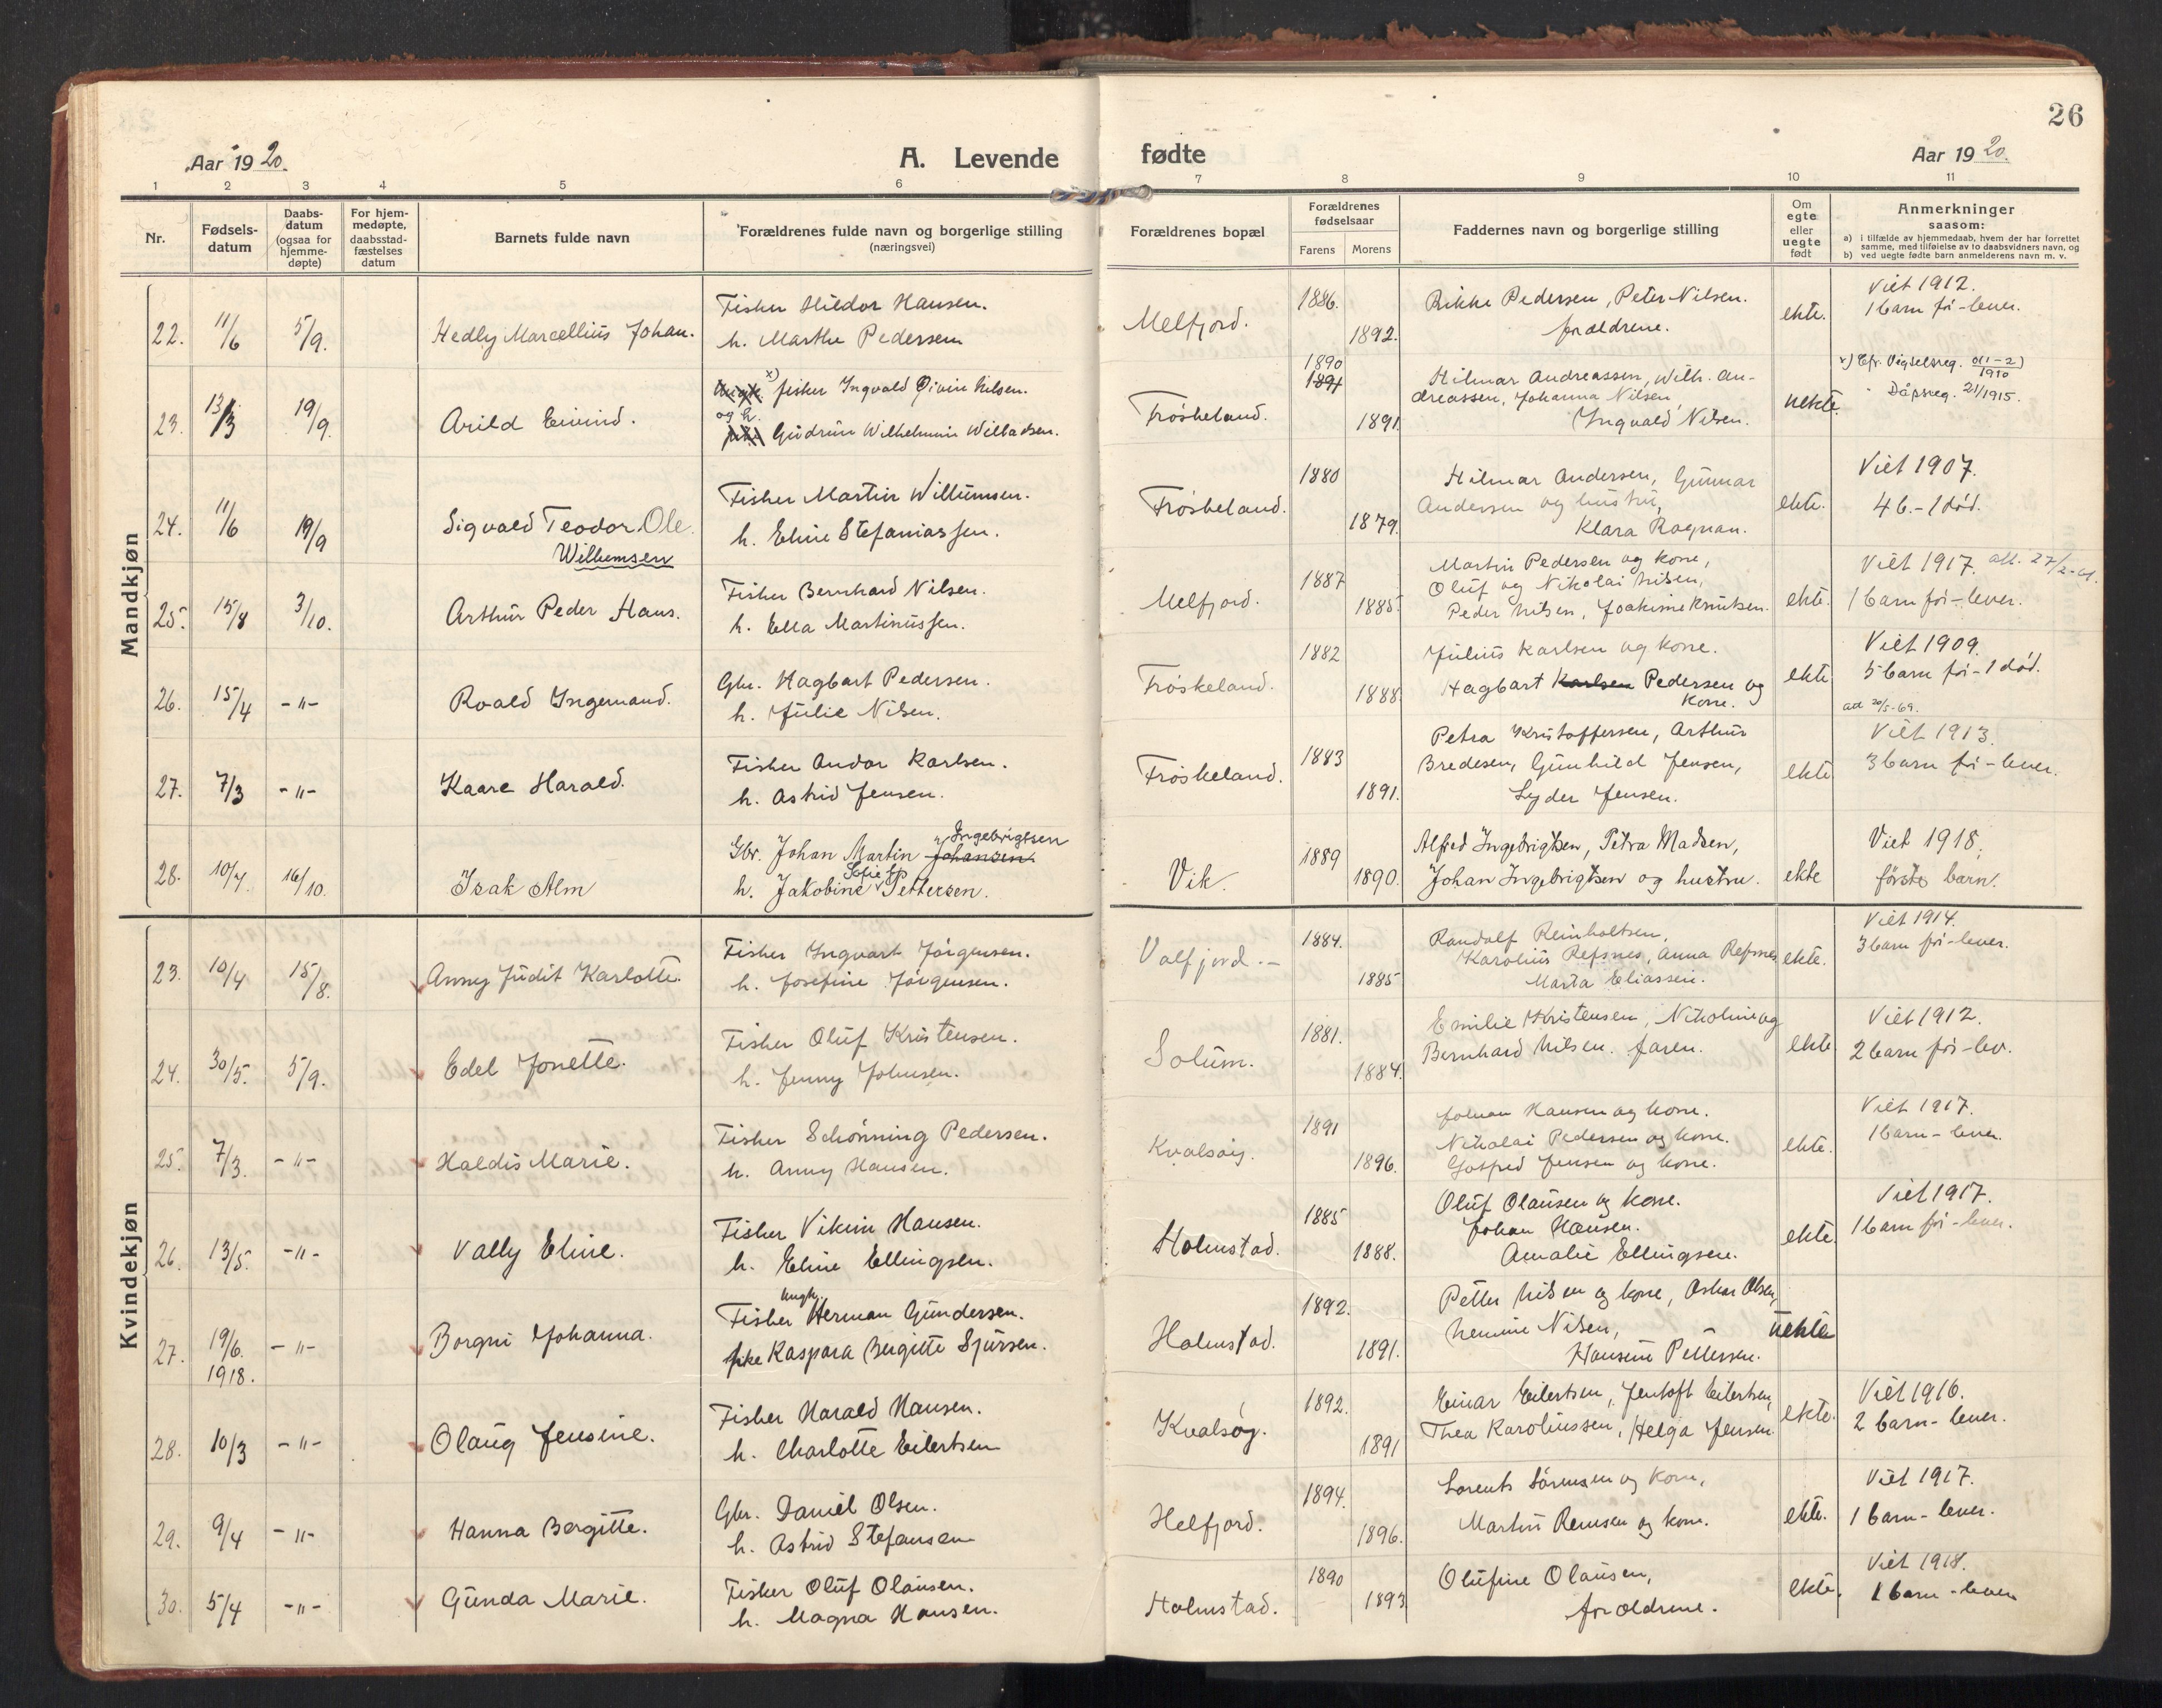 26
Aar 1920.
A. Levende fødte
Aar 1920.
1 2 3 4 5 6 7 8 9 10 11
Nr.
Fødsels-
datum
Daabs-
datum
(ogsaa for
hjemme-
døpte)
For hjem-
medøpte,
daabsstad-
fæstelses
datum
Barnets fulde navn
Forældrenes fulde navn og borgerlige stilling
(næringsvei)
Forældrenes bopæl
Forældrenes
fødselsaar
Farens Morens
Faddernes navn og borgerlige stilling
Om
egte
eller
uegte
født
Anmerkninger
saasom:
a) i tilfælde av hjemmedaab, hvem der har forrettet
samme, med tilføielse av to daabsvidners navn, og
b) ved uegte fødte barn anmelderens navn m. v.
Mandkjøn
22. 11/6 5/9. Hedly Marcellius Johan.
Fisker Hildor Hansen.
h. Marthe Pedersen
Melfjord.
1886.
1892.
Rikke Pedersen, Peter Nilsen.
forældrene.
ekte.
Viet 1912.
1 barn før - lever.
23. 13/3 19/9. Arild Eivind.
x) fisker Ingvald Eivin Nilsen.
og h.
Gudrun Wilhelmine Willadsen.
Frøskeland.
1890
1891
1891.
Hilmar Andreassen, Wilh. An-
dreassen, Johanna Nilsen
Ingvald Nilsen.
uekte.
x) Cfr. Vigselsreg.
Dåpsreg. 21/1915.
24. 11/6 19/9 Sigvald Teodor Ole.
Willumsen
Fisker Martin Willumsen.
h. Eline Stefaniassen.
Frøskeland.
1880
1879.
Hilmar Andersen, Gunnar
Andersen og hustru,
Klara Ragnan.
ekte.
Viet 1907.
4 b. - 1 død.
25. 15/8 3/10. Arthur Peder Hans.
Fisker Bernhard Nilsen.
h. Ella Martinussen.
Melfjord.
1887
1885.
Martin Pedersen og kone,
Oluf og Nikolai Nilsen,
Peder Nilsen, Joakime Knutsen.
ekte.
Viet 1917. att. 27/2-61.
1 barn før - lever.
26. 15/4 -"- Roald Ingemand.
Gbr. Hagbart Pedersen.
h. Julie Nilsen.
Frøskeland.
1882
1888.
Julius Karlsen og kone.
Hagbart Karlsen Pedersen og
kone.
ekte
Viet 1909.
5 barn før - 1 død.
att 20/5-69.
27. 7/3 -"- Kaare Harald.
Fisker Andor Karlsen.
h. Astrid Jensen.
Frøskeland.
1883
1891.
Petra Kristoffersen, Arthur
Bredesen, Gunhild Jensen,
Lyder Jensen.
ekte
Viet 1913.
3 barn før - lever.
28. 10/7. 16/10. Isak Alm
Ingebrigtsen
Gbr. Johan Martin Johansen
Sofie
h. Jakobine Pettersen.
Vik.
1889
1890.
Alfred Ingebrigtsen, Petra Madsen,
Johan Ingebrigtsen og hustru.
ekte
Viet 1918,
første barn.
Kvindekjøn
23. 10/4 15/8. Anny Judit Karlotte.
Fisker Ingvart Jörgensen.
h. Josefine Jörgensen.
Valfjord.-
1884.
1885
Randolf Reinholtsen,
Karolius Refsnes, Anna Refsnes
Marta Eliassen.
ekte.
Viet 1914.
3 barn før - lever.
24. 30/5. 5/9. Edel Jonette.
Fisker Oluf Kristensen.
h. Jenny Johnsen.
Solum.
1881.
1884.
Emilie Kristensen, Nikoline og
Bernhard Nilsen. faren.
ekte
Viet 1912.
2 barn før - lev.
25. 7/3. -"- Haldis Marie.
Fisker Schönning Pedersen.
h. Anny Hansen.
Kvalsøy.
1891
1896.
Johan Hansen og kone.
Nikolai Pedersen og kone.
Gotfred Jensen og kone.
ekte.
Viet 1917.
1 barn - lever.
26. 13/5. -"- Vally Eline.
Fisker Vikin Hansen.
h. Eline Ellingsen.
Holmstad.
1885
1888.
Oluf Olausen og kone.
Johan Hansen.
Amalie Ellingsen.
ekte.
Viet 1917.
1 barn før - lever.
27. 19/6. 1918. -"- Borgni Johanna.
Ungk.
Fisker Herman Gundersen.
pike Kaspara Bergitte Sjursen.
Holmstad.
1892.
1891.
Petter Nilsen og kone, Oskar Olsen,
Nemine Nilsen,
Hansine Pettersen.
uekte
28. 10/3 -"- Olaug Jensine.
Fisker Harald Hansen.
h. Charlotte Eilertsen
Kvalsøy.
1892.
1891
Einar Eilertsen, Jentoft Eilertsen,
Thea Karoliussen, Helga Jensen.
ekte.
Viet 1916.
2 barn - lever.
29. 9/4 -"- Hanna Bergitte.
Gbr. Daniel Olsen.
h. Astrid Stefansen
Helfjord.
1894.
1896.
Lorents Sörensen og kone,
Martin Remsen og kone.
ekte.
Viet 1917.
1 barn - lever.
30. 5/4 -"- Gunda Marie.
Fisker Oluf Olausen.
h. Magna Hansen.
Holmstad.
1890
1893
Olufine Olausen,
forældrene.
ekte.
Viet 1918.
1 barn - lever